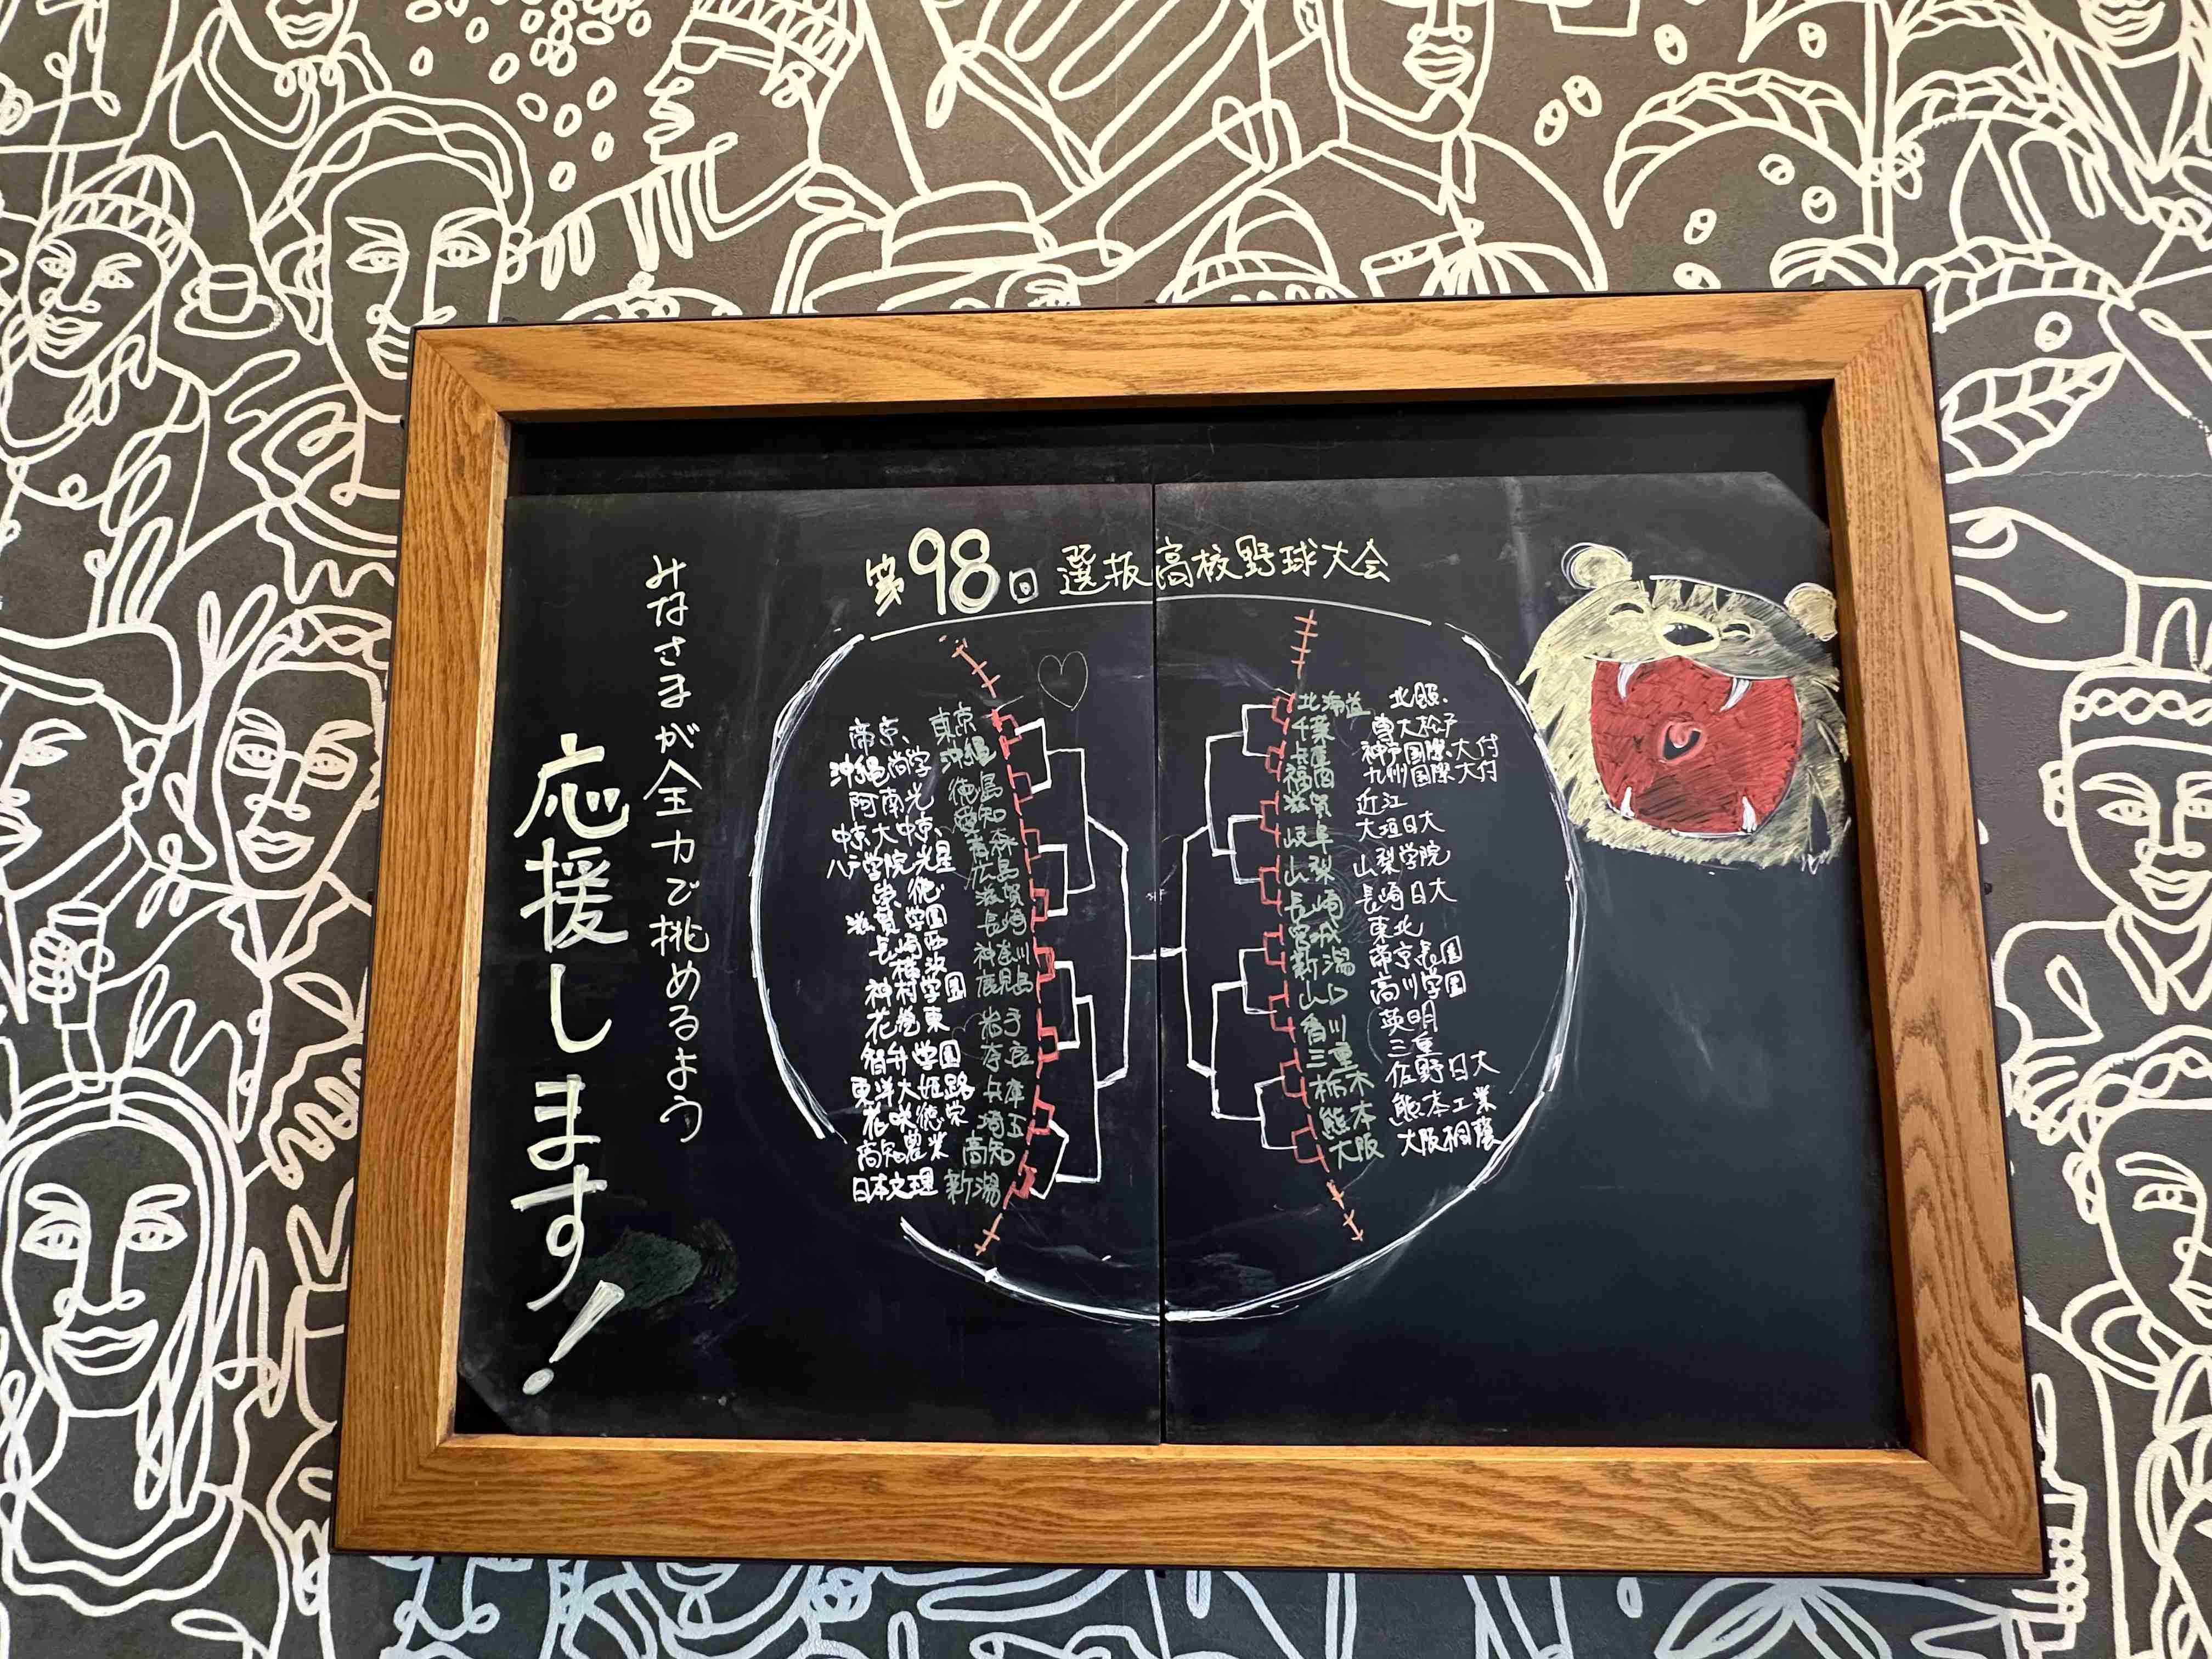 第98回 選抜高校野球大会
みなさまが全力で挑めるよう
応援します!
帝京、 東京
沖縄尚学 沖縄
阿南光 徳島
中京大中京、 愛知
八戸学院光星 青森
崇徳 広島
滋賀学園 滋賀
長崎西 長崎
横浜 神奈川
神村学園 鹿児島
花巻東 岩手
智弁学園 奈良
東洋大姫路 兵庫
花咲徳栄 埼玉
高知農業 高知
日本文理 新潟
北海道 北照
千葉 専大松戸
兵庫 神戸国際大付
福岡 九州国際大付
滋賀 近江
岐阜 大垣日大
山梨 山梨学院
長崎 長崎日大
宮城 東北
新潟 帝京長岡
山口 高川学園
香川 英明
三重 三重
栃木 佐野日大
熊本 熊本工業
大阪 大阪桐蔭